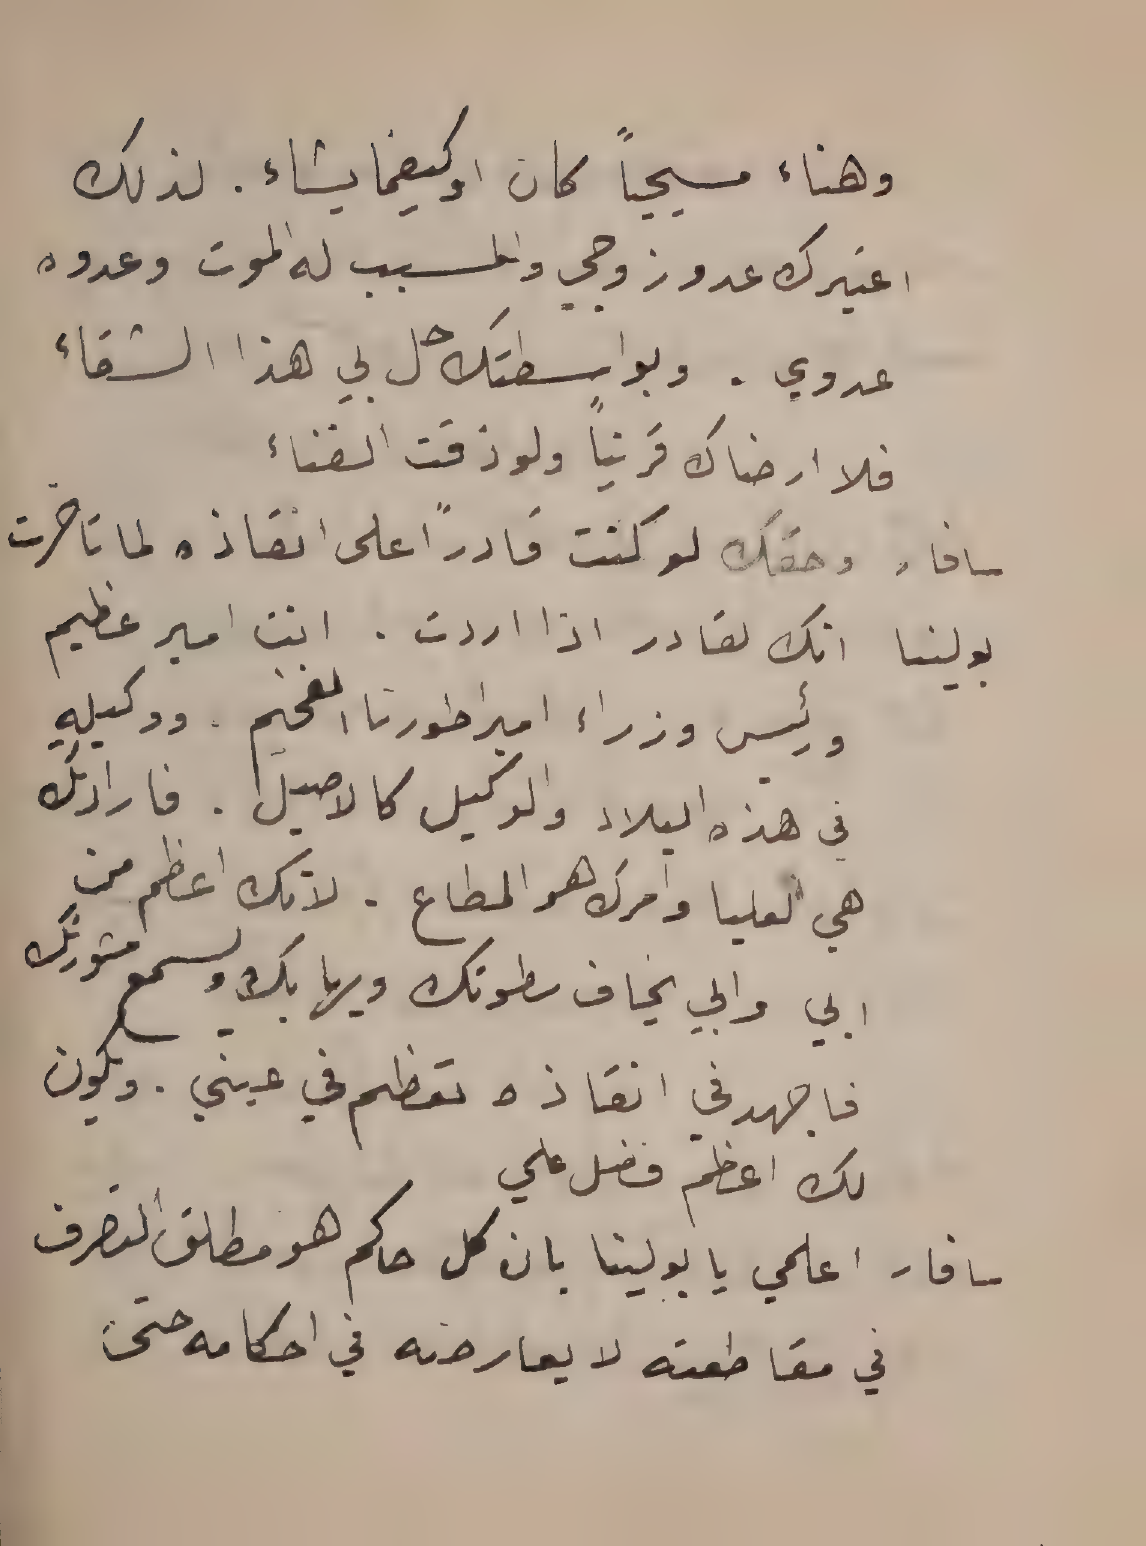 وهناء مسيحياً كان او كيفما يشاء . لذلك
اعتبرك عدو زوجي والمسبب له الموت وعدوه
عدوي . وبواسطتك حل بي هذا الشقاء
فلا ارضاك قريناً ولو ذقت الفناء
سافار وحقك لو كنت قادراً على انقاذه لما تاخرت
بولينا انك لقادر اذا اردت . انت امير عظيم
ورئيس وزراء امبراطورنا المفخم . ووكيله
في هذه البلاد والوكيل كالاصيل . فارادتك
هي العليا وامرك هو المطاع . لانك اعظم من
ابي وابي يخاف سطوتك ويهابك ويسمع مشورتك
فاجهد في انقاذه تعظم في عيني . ويكون
لك اعظم فضل علي
سافار اعلمي يا بولينا بان كل حاكم هو مطلق التصرف
في مقاطعته لا يعارضه في احكامه حتى